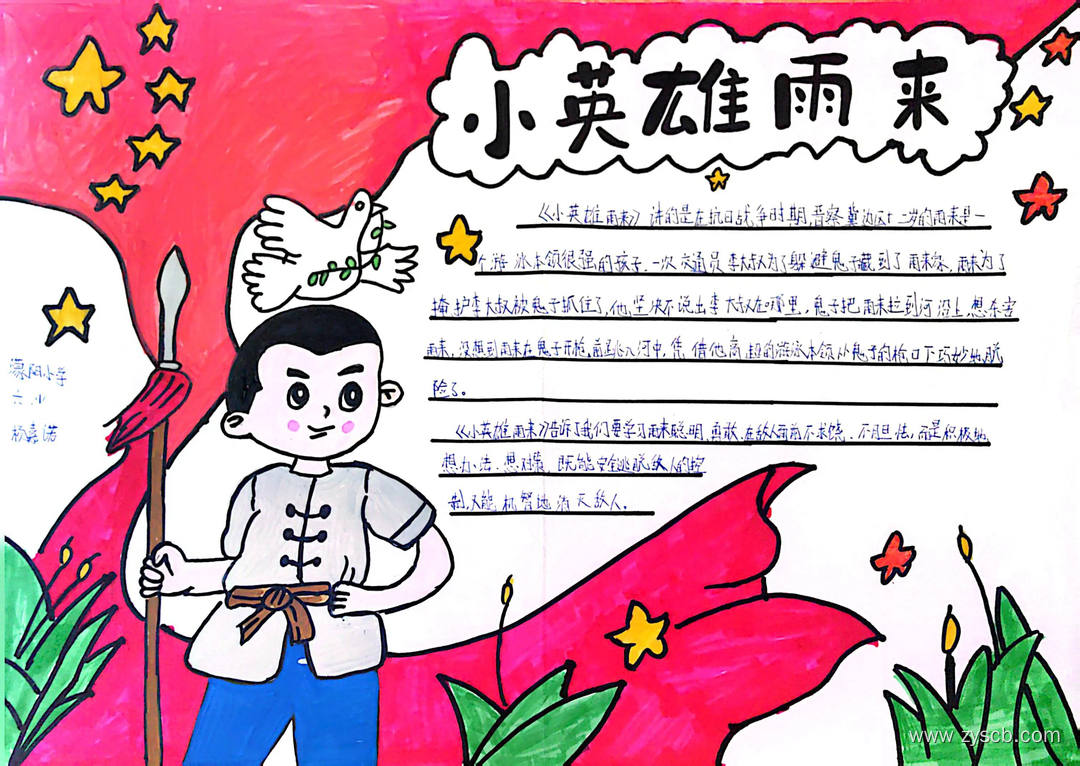 小英雄雨来
《小英雄雨来》讲的是在抗日战争时期,晋察冀边区十二岁的雨来是一
个游泳本领很强的孩子。一次交通员李大叔为了躲避鬼子藏到了雨来家,雨来为了
掩护李大叔被鬼子抓住了,他坚决不说出李大叔在哪里,鬼子把雨来拉到河沿上,想杀害
雨来,没想到雨来在鬼子开枪前跳入河中,凭借他高超的游泳本领从鬼子的枪口下巧妙地脱
险了。
《小英雄雨来》告诉了我们要学习雨来聪明,勇敢,在敌人面前不求饶,不胆怯,而是积极地
想办法,想对策,既能安全逃脱敌人的控
制,又能机智地消灭敌人。
濛阳小学
杨嘉诺
www.zyscb.com